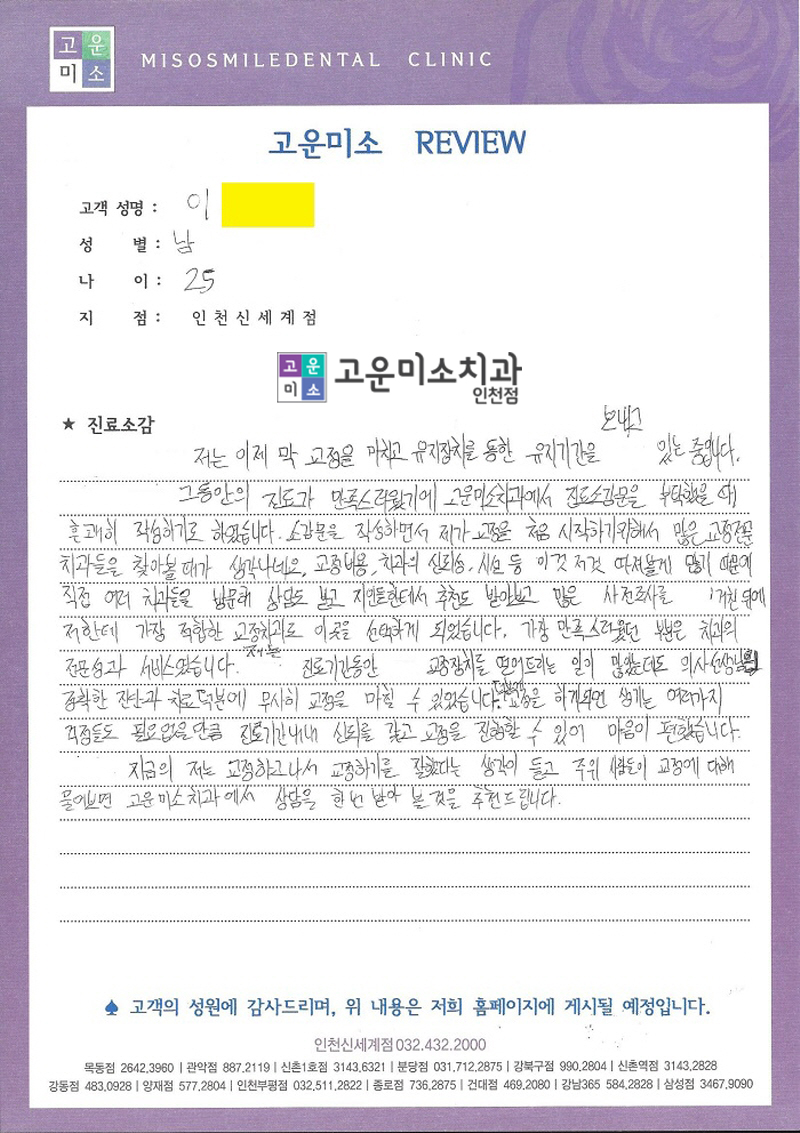 고운
미소
MISOSMILEDENTAL CLINIC
고운미소 REVIEW
고객 성명 : 이
성 별 : 남
나 이 : 25
지 점 : 인천신세계점
고운
미소
고운미소치과
인천점
★ 진료소감
저는 이제 막 교정을 마치고 유지장치를 통한 유지기간을 보내고 있는 중입니다.
그동안의 진료가 만족스러웠기에 고운미소치과에서 진료소감문을 부탁했을 때
흔쾌히 작성하기로 하였습니다. 소감문을 작성하면서 제가 교정을 처음 시작하기위해서 많은 교정전문
치과들을 찾아볼 때가 생각나네요, 교정비용, 치과의 신뢰성, 시설 등 이것 저것 따져볼게 많기 때문에
직접 여러 치과들을 방문해 상담도 받고 지인들한테서 추천도 받아보고 많은 사전조사를 거친 뒤에
저한테 가장 적합한 교정치과로 이곳을 선택하게 되었습니다. 가장 만족스러웠던 부분은 치과의
전문성과 서비스였습니다. 저는 진료기간동안 교정장치를 떨어트리는 일이 많았는데도 의사선생님의
정확한 진단과 치료덕분에 무사히 교정을 마칠 수 있었습니다. 교정을 하게되면 생기는 여러가지
걱정들도 필요없을만큼 진료기간내내 신뢰를 갖고 교정을 진행할 수 있어 마음이 편했습니다.
지금의 저는 교정하고나서 교정하기를 잘했다는 생각이 들고 주위 사람들이 교정에 대해
물어보면 고운미소치과에서 상담을 한번 받아 볼 것을 추천드립니다.
♠ 고객의 성원에 감사드리며, 위 내용은 저희 홈페이지에 게시될 예정입니다.
인천신세계점 032.432.2000
목동점 2642,3960 | 관악점 887,2119 | 신촌1호점 3143,6321 | 분당점 031,712,2875 | 강북구점 990,2804 | 신촌역점 3143,2828
강동점 483,0928 | 양재점 577,2804 | 인천부평점 032,511,2822 | 종로점 736,2875 | 건대점 469,2080 | 강남365 584,2828 | 삼성점 3467,9090